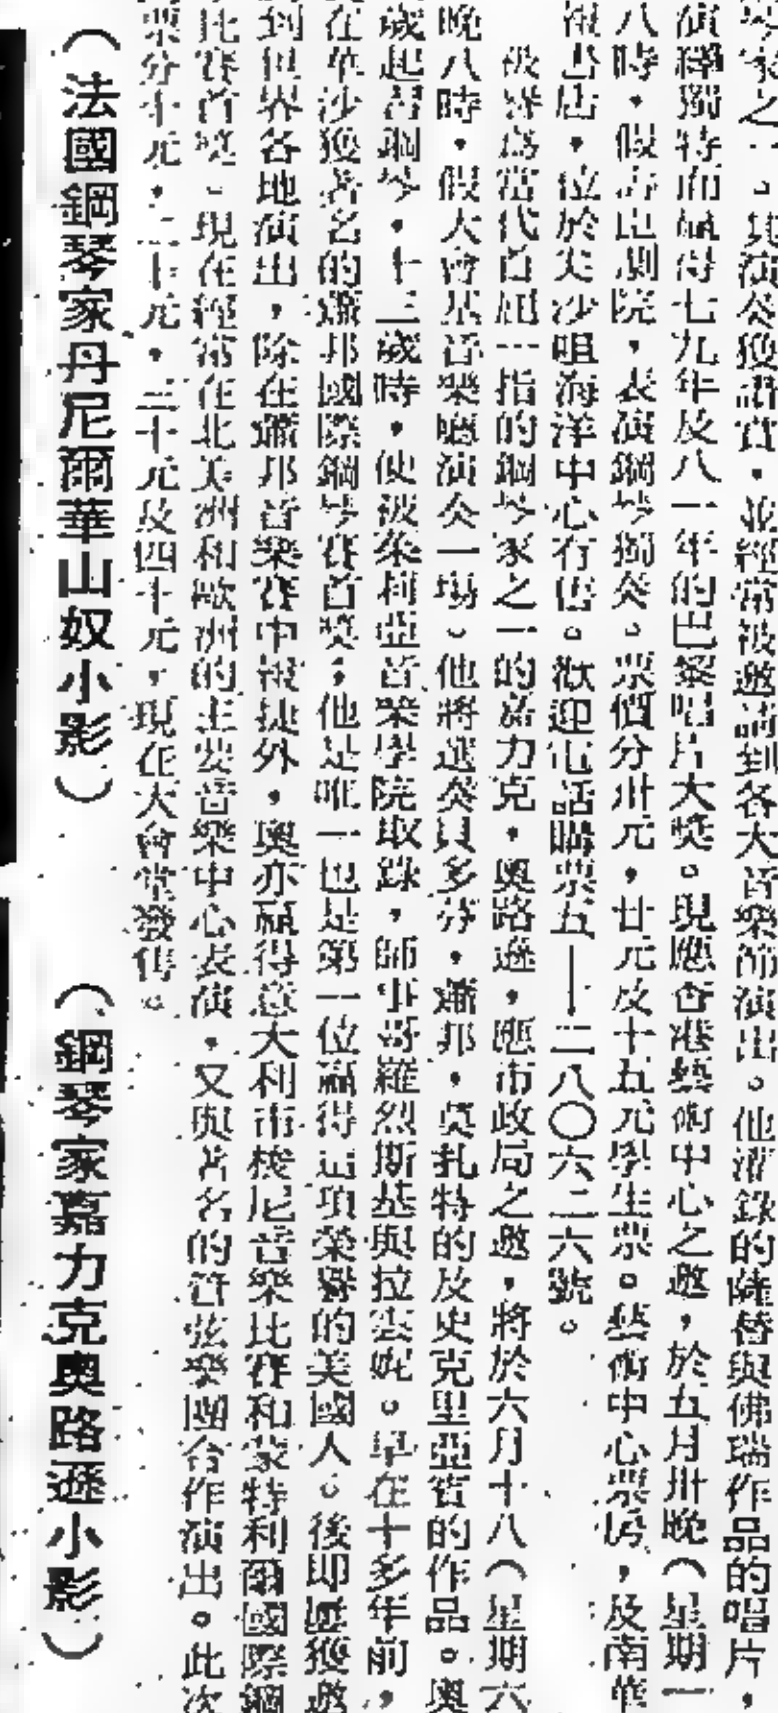 琴家之一。其演奏獲讚賞，並經常被邀請到各大音樂節演出。他灌錄的薩替與佛瑞作品的唱片，
演繹獨特而贏得七九年及八一年的巴黎唱片大獎。現應香港藝術中心之邀，於五月卅晚（星期一
八時，假壽臣劇院，表演鋼琴獨奏。票價分卅元，廿元及十五元學生票。藝術中心票房，及南華
視書店，位於尖沙咀海洋中心有售。歡迎電話購票五—二八〇六二六號。
被譽為當代首屈一指的鋼琴家之一的嘉力克，奧路遜，應市政局之邀，將於六月十八（星期六
晚八時，假大會堂音樂廳演奏一場。他將選奏貝多芬，蕭邦，莫扎特的及史克里亞賓的作品。奧
歲起習鋼琴，十三歲時，便被茱莉亞音樂學院取錄，師事哥羅烈斯基與拉雲妮。早在十多年前，
在華沙獲著名的蕭邦國際鋼琴賽首獎；他是唯一也是第一位贏得這項榮譽的美國人。後即屢獲邀
到世界各地演出，除在蕭邦音樂賽中報捷外，奧亦贏得意大利市梭尼音樂比賽和蒙特利爾國際鋼
比賽首獎。現在經常在北美洲和歐洲的主要音樂中心表演，又與著名的管弦樂團合作演出。此次
票分十元，二十元，三十元及四十元，現在大會堂發售。
（法國鋼琴家丹尼爾華山奴小影）
（鋼琴家嘉力克奧路遜小影）